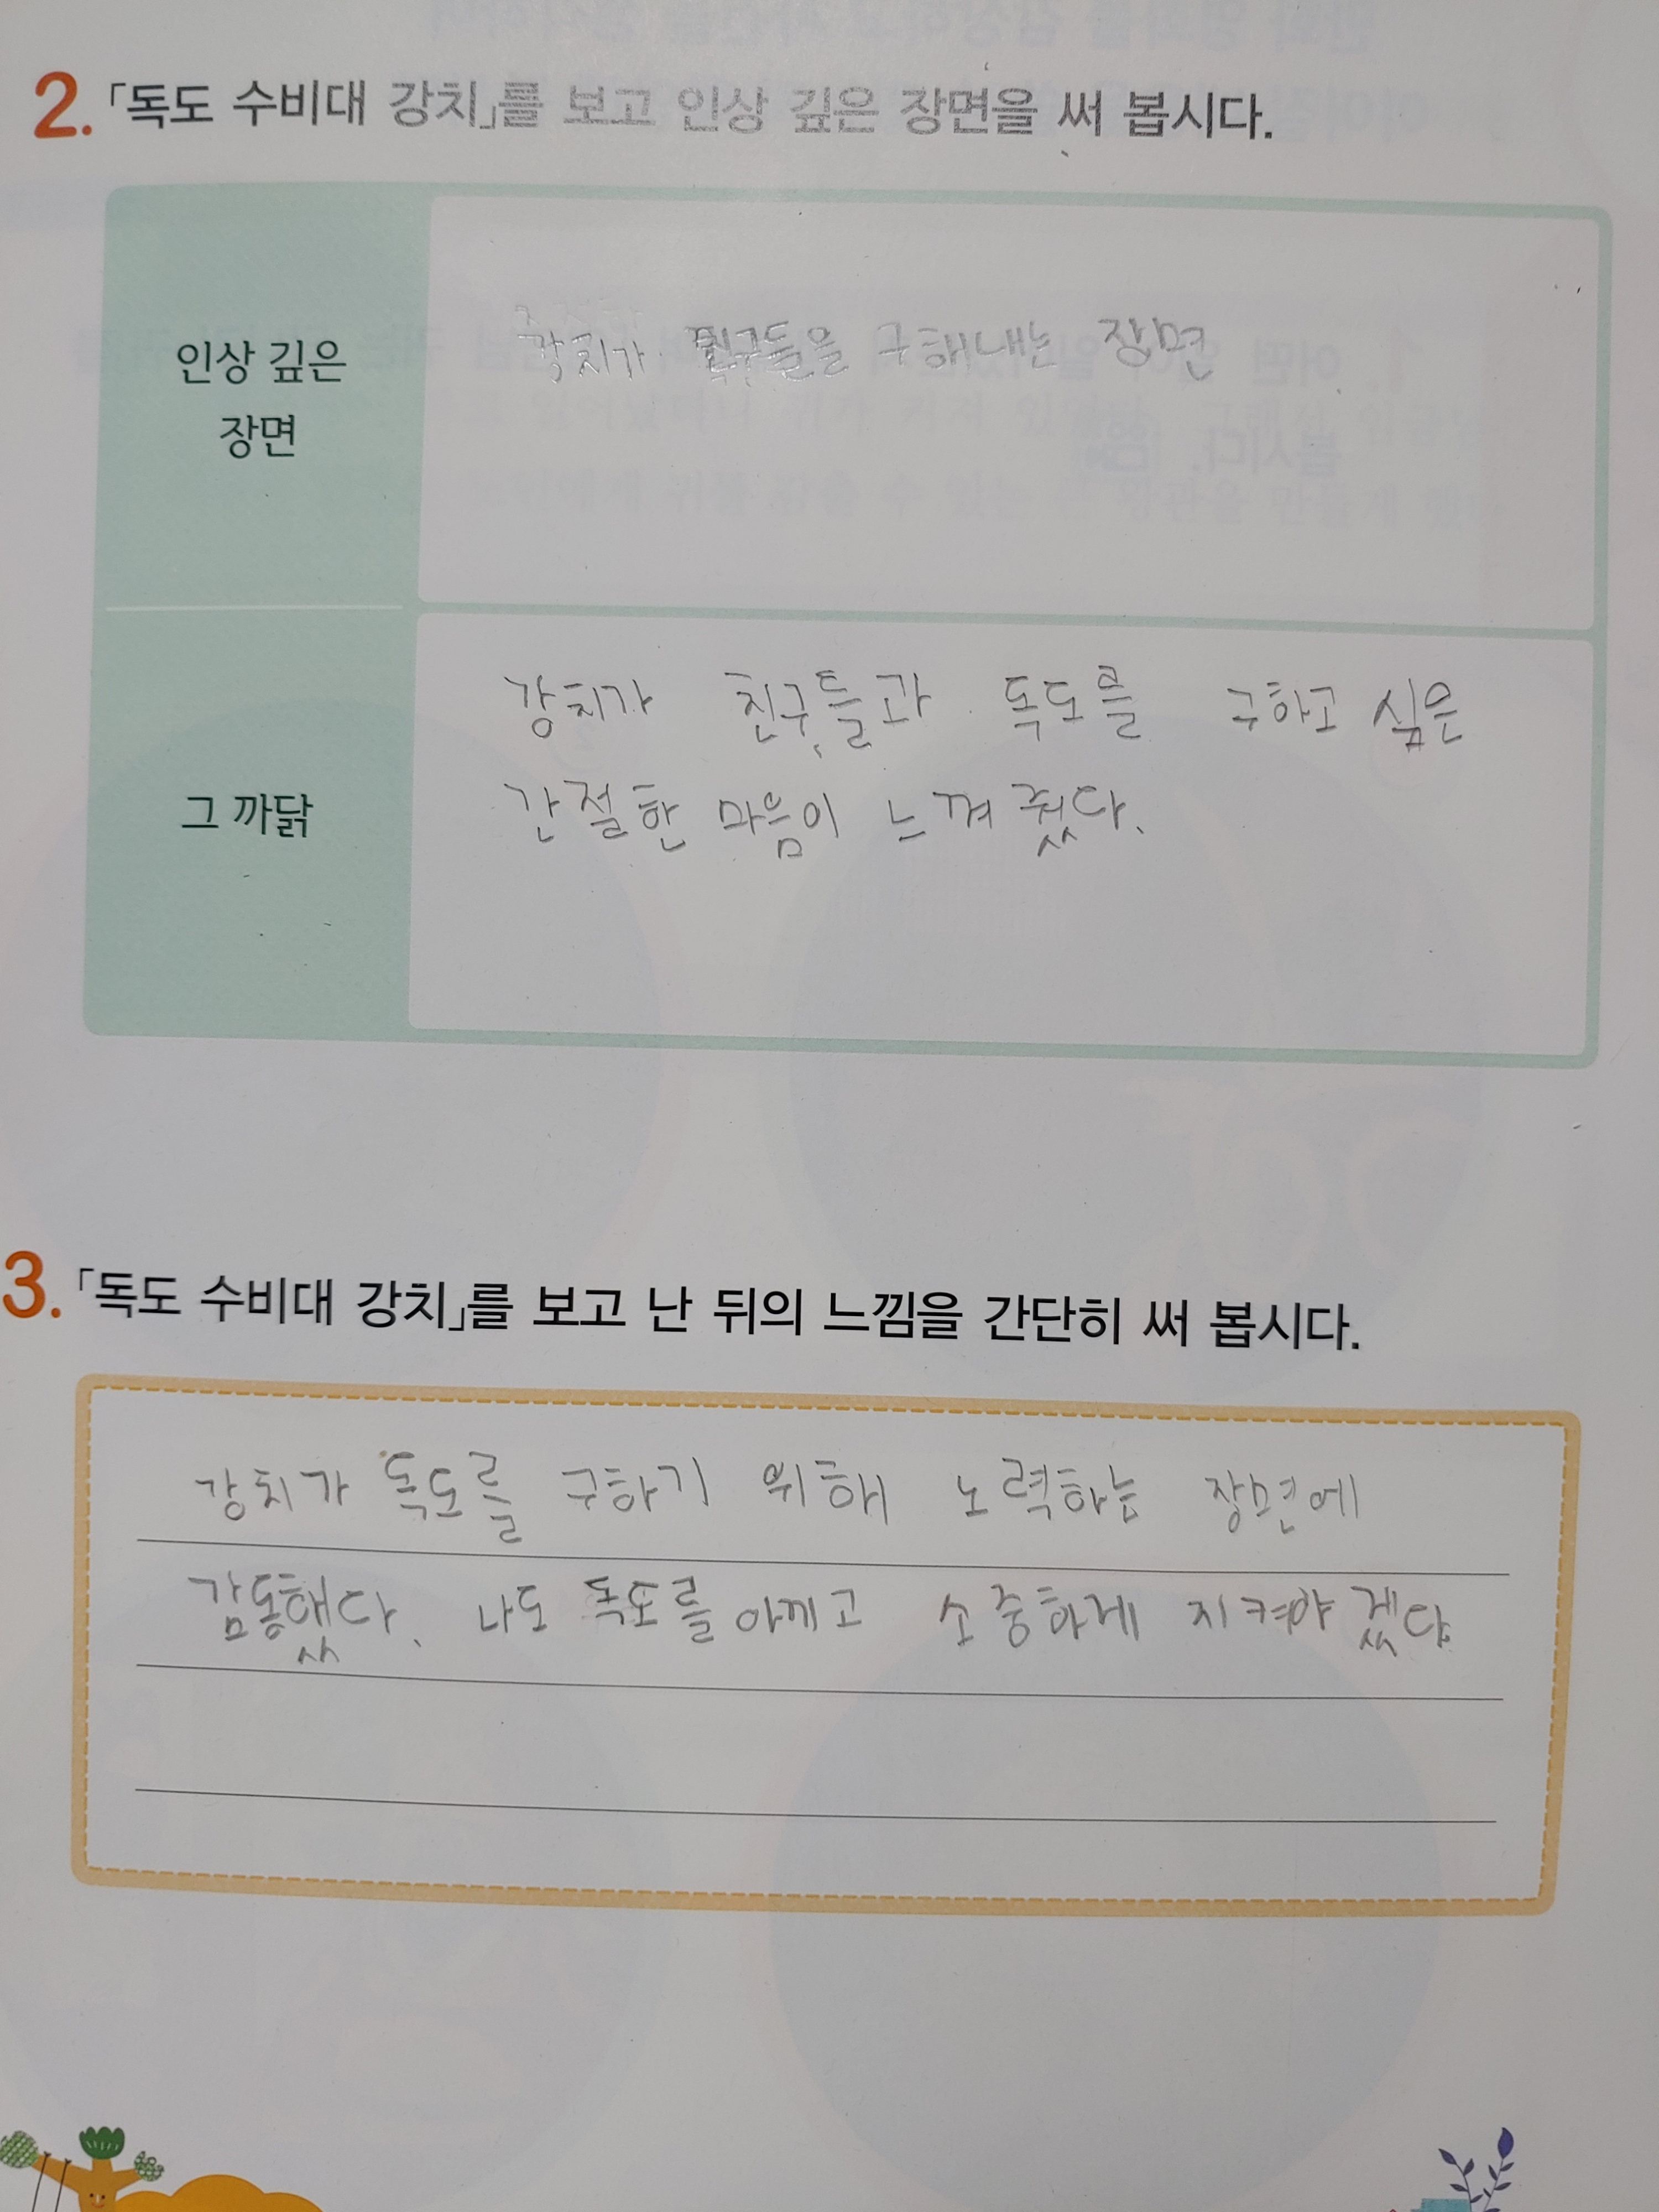 2. 「독도 수비대 강치」를 보고 인상 깊은 장면을 써 봅시다.
인상 깊은
장면
강치가 친구들을 구해내는 장면
그 까닭
강치가 친구들과 독도를 구하고 싶은
간절한 마음이 느껴졌다.
3. 「독도 수비대 강치」를 보고 난 뒤의 느낌을 간단히 써 봅시다.
강치가 독도를 구하기 위해 노력하는 장면에
감동했다. 나도 독도를 아끼고 소중하게 지켜야겠다.